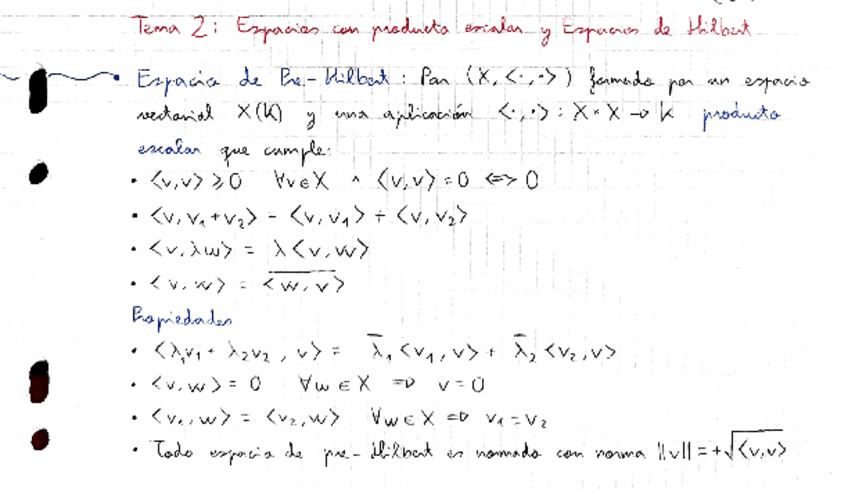 Tema 2: Espacios con producto escalar y Espacios de Hilbert
• Espacio de Pre-Hilbert: Par (X, <·,·>) formado por un espacio
vectorial X(K) y una aplicación <·,·>: X×X → K producto
escalar que cumple:
• <v,v> ≥ 0 ∀v∈X ^ <v,v> = 0 <=> 0
• <v, v₁+v₂> = <v, v₁> + <v, v₂>
• <v, λw> = λ<v, w>
• <v, w> = \overline{<w, v>}
Propiedades
• <λ₁v₁ + λ₂v₂, v> = λ̄₁<v₁, v> + λ̄₂<v₂, v>
• <v, w> = 0 ∀w∈X => v = 0
• <v₁, w> = <v₂, w> ∀w∈X => v₁ = v₂
• Todo espacio de pre-Hilbert es normado con norma ||v|| = +√<v,v>